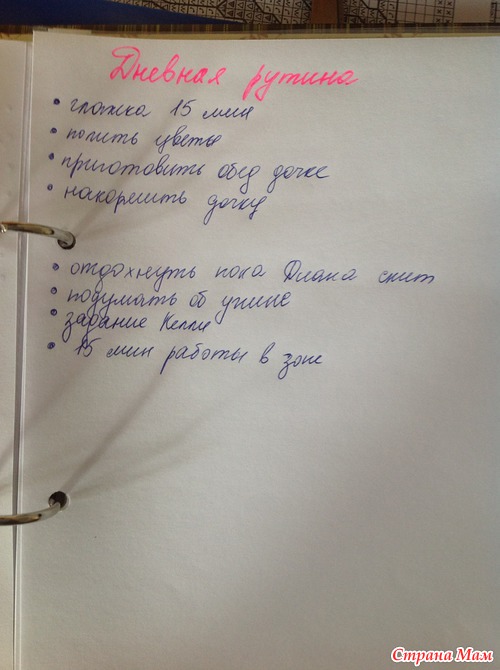 Дневная рутина
• глажка 15 мин
• полить цветы
• приготовить обед дочке
• накормить дочку
• отдохнуть пока Диана спит
• подумать об ужине
• задание Келли
• 15 мин работы в зоне
Страна Мам